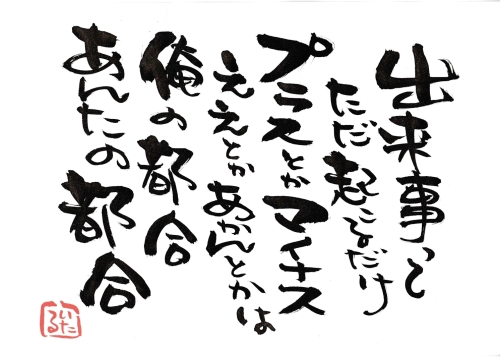 出来事って
ただ起こるだけ
プラスとかマイナス
ええとかあかんとかは
俺の都合
あんたの都合